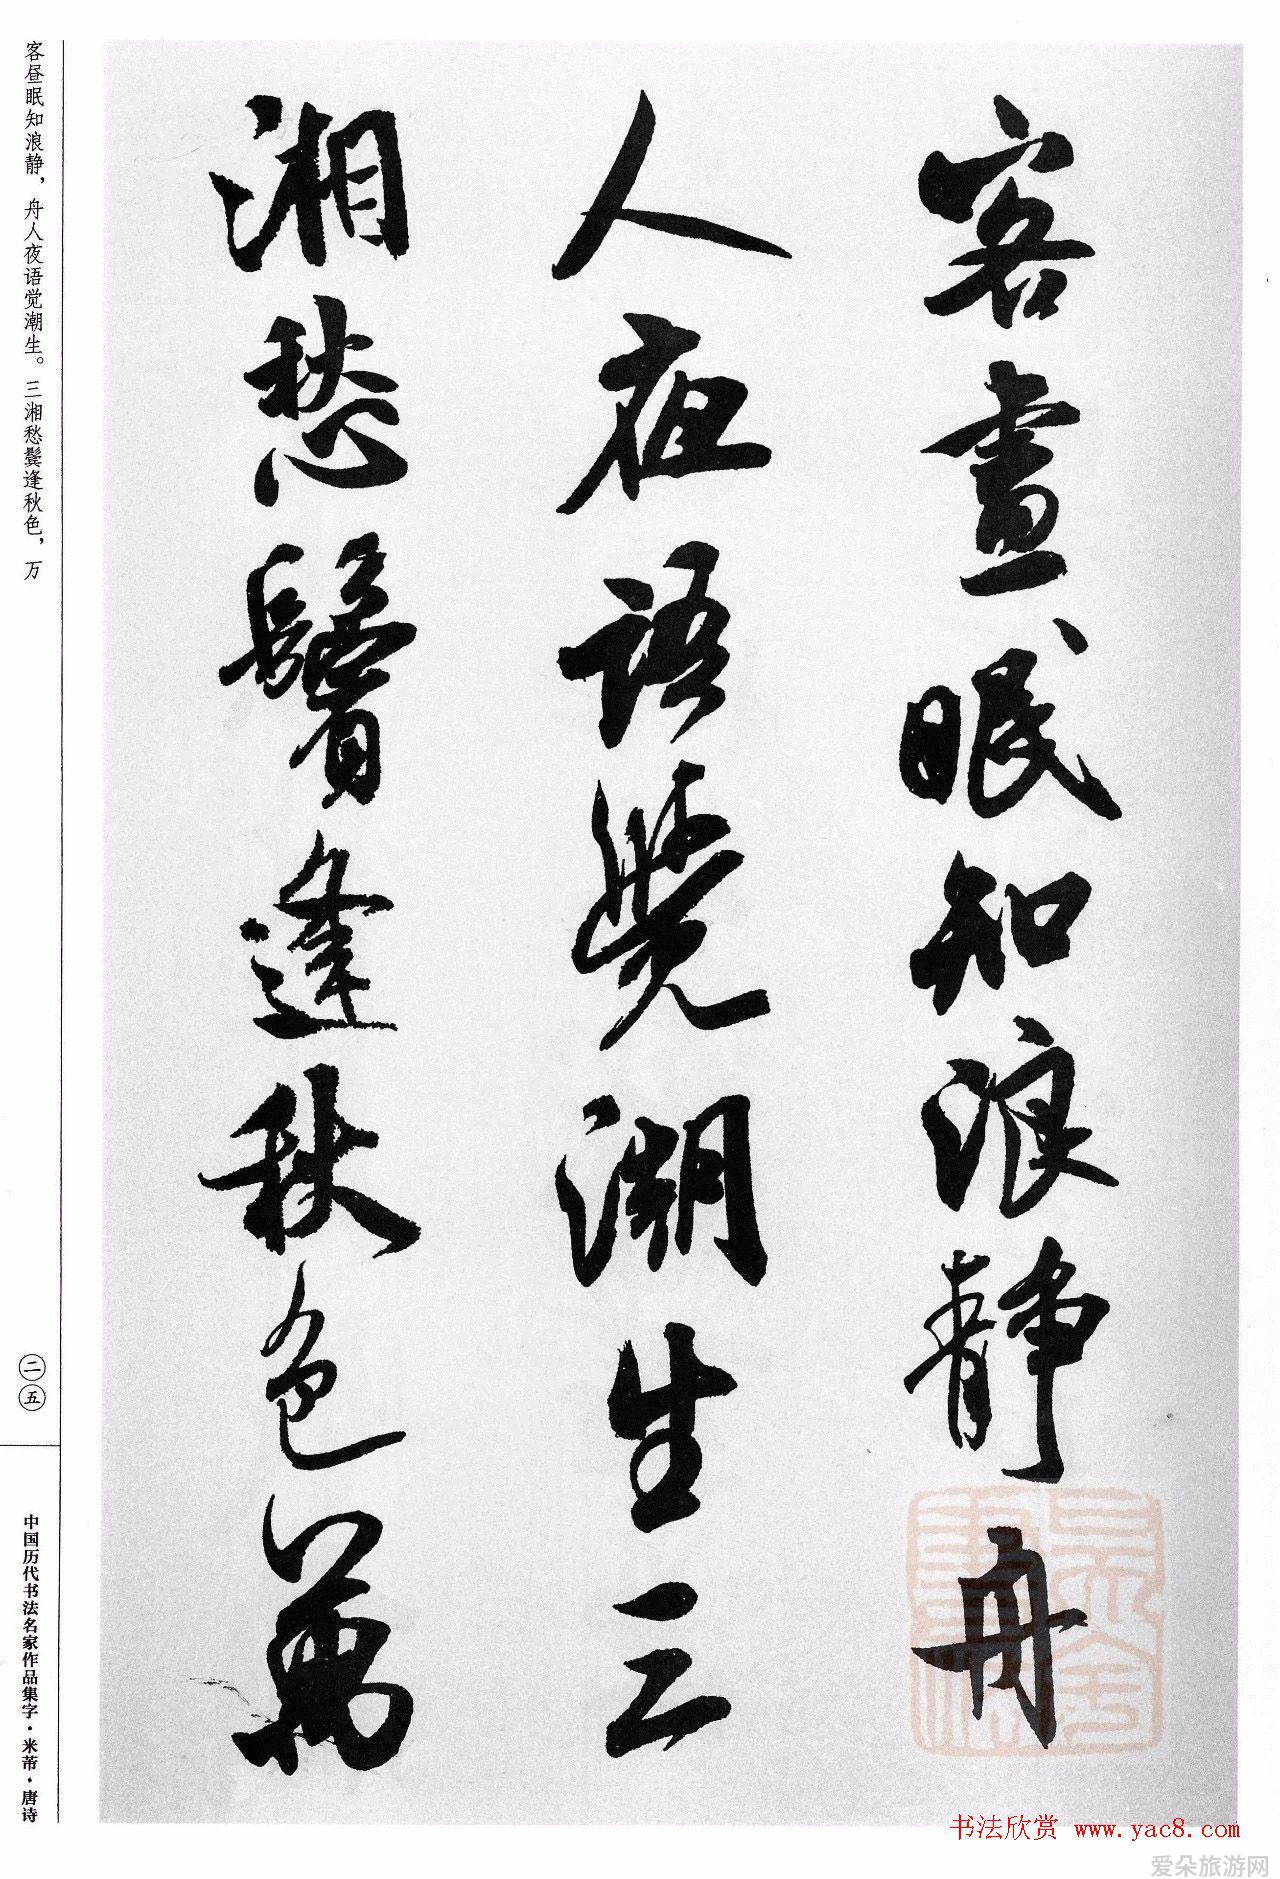 客晝眠知浪静舟
人夜語覺潮生三
湘愁鬢逢秋色萬
客昼眠知浪静，舟人夜语觉潮生。三湘愁鬓逢秋色，万
二五
中国历代书法名家作品集字·米芾·唐诗
书法欣赏 www.yac8.com
爱朵旅游网